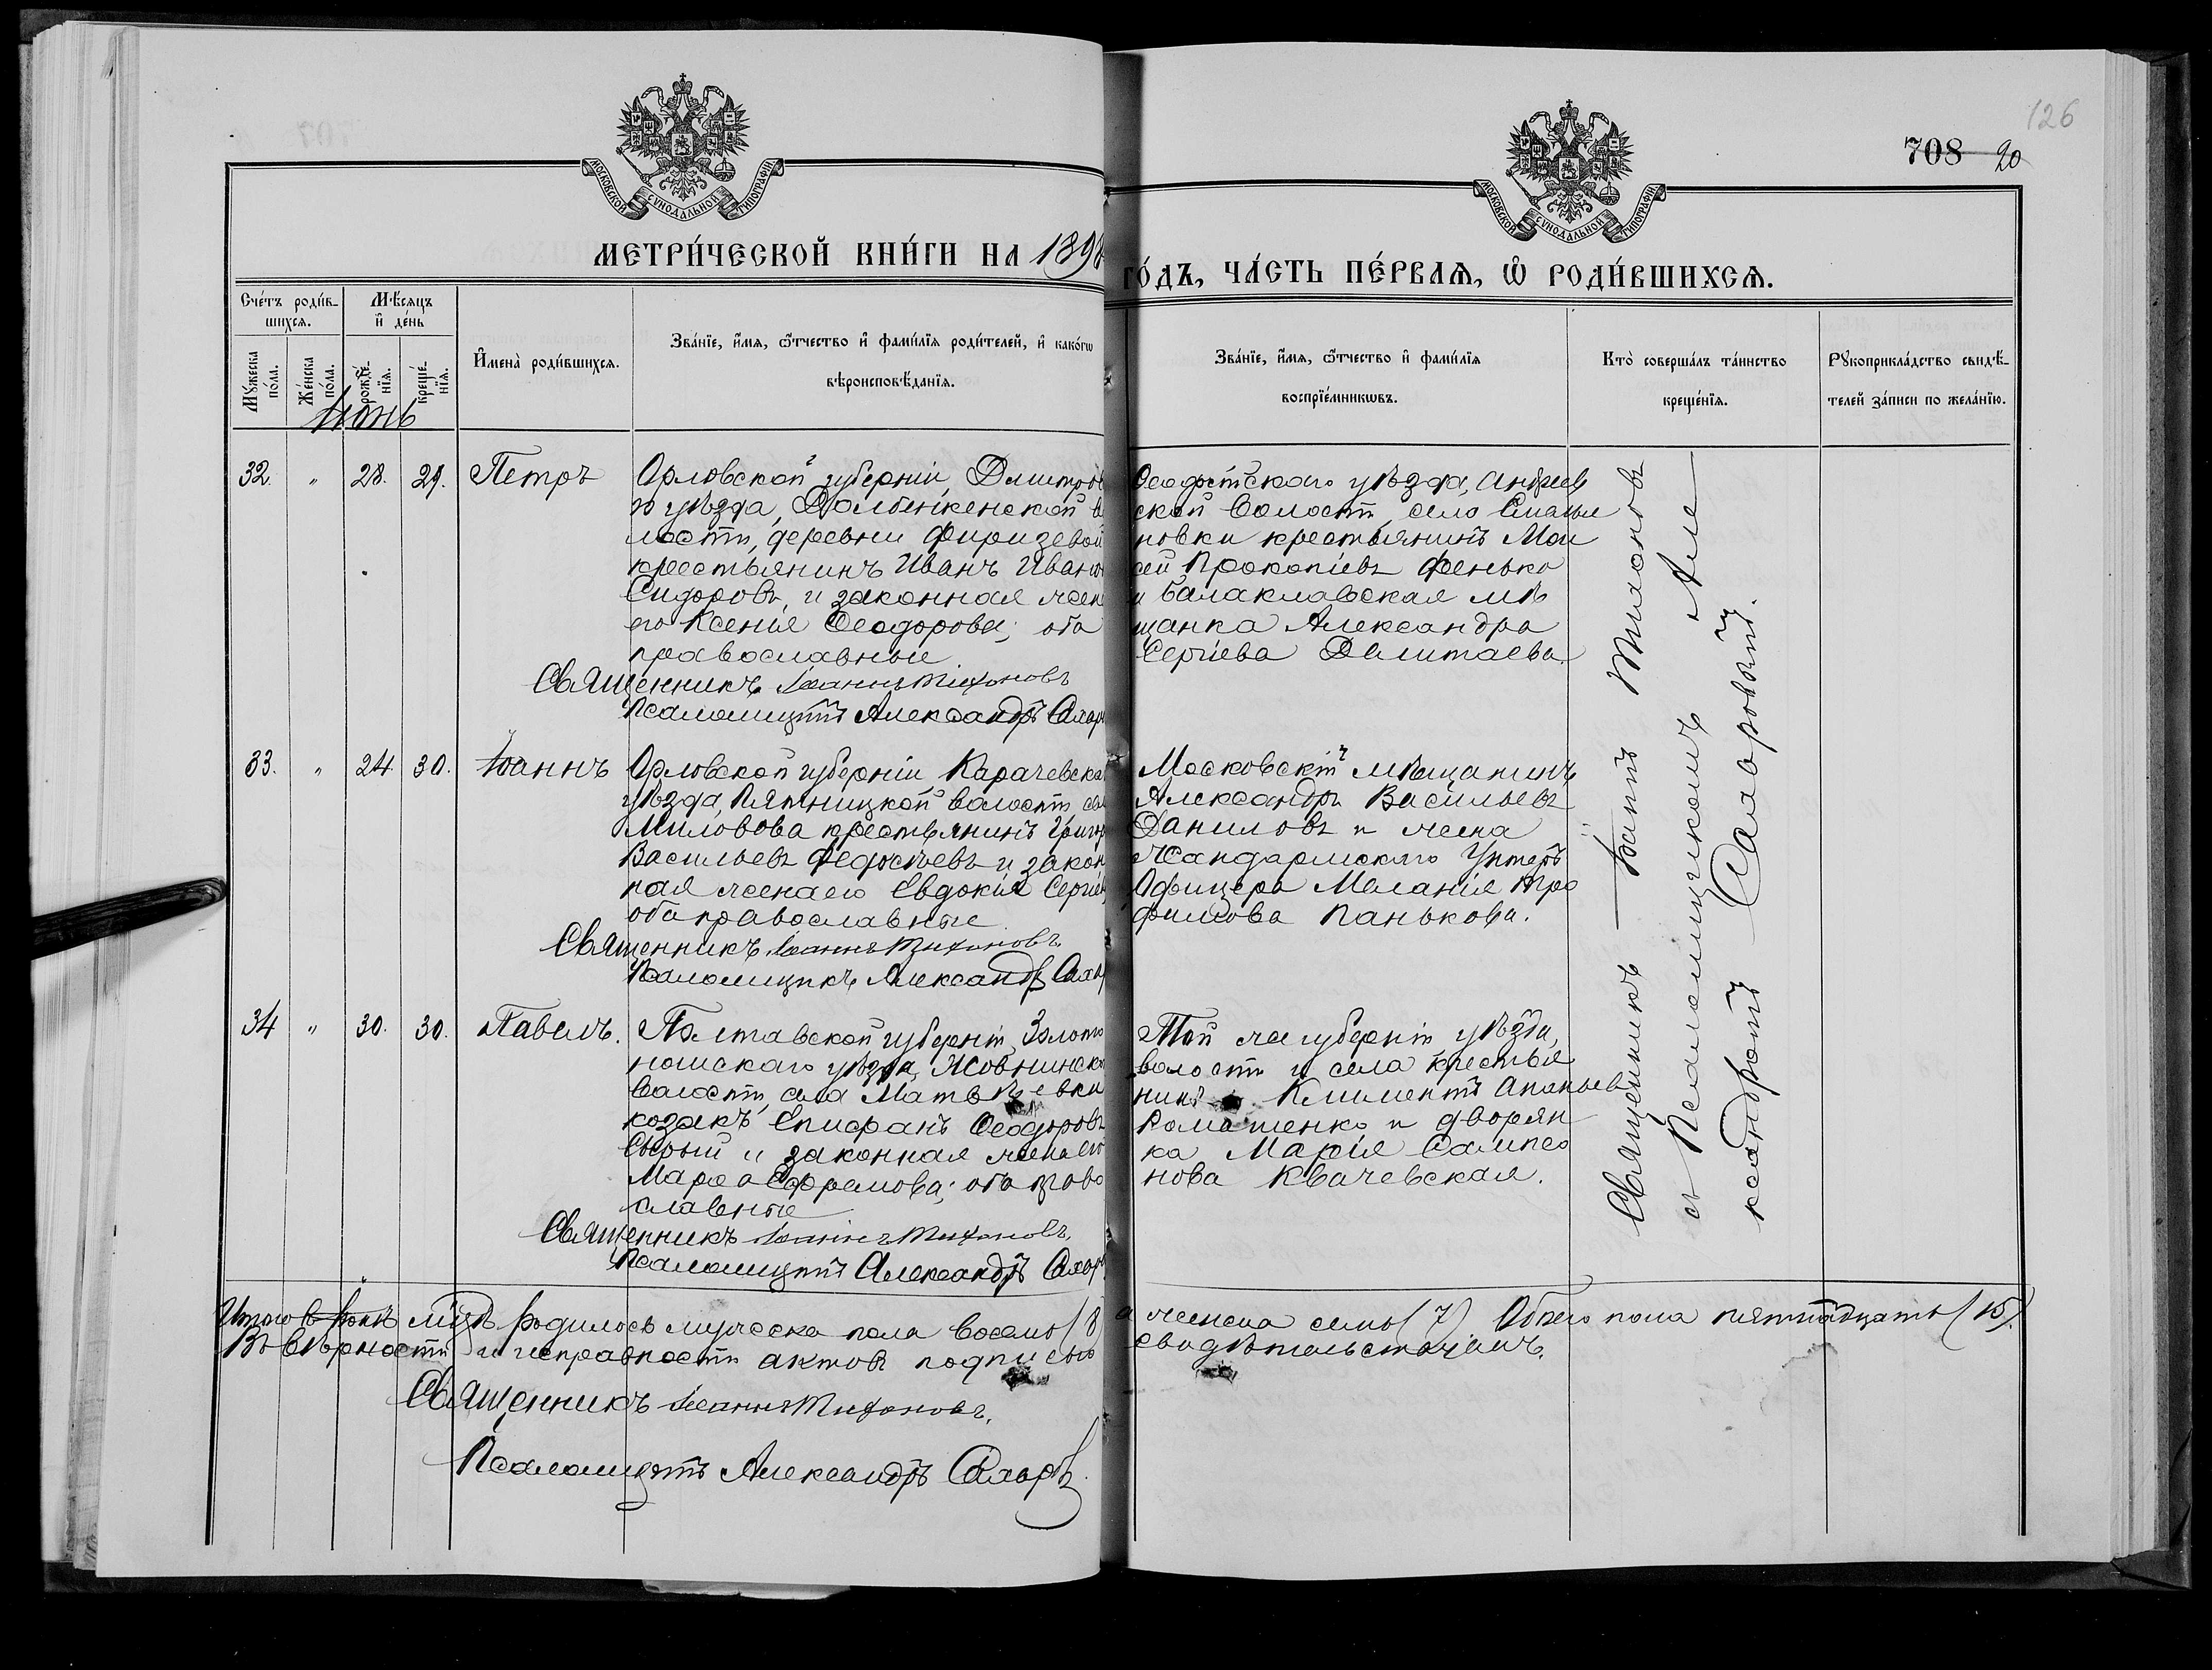 126
708 20
МОСКОВСКОЙ СѴНОДАЛЬНОЙ ТИПОГРАФІИ
МОСКОВСКОЙ СѴНОДАЛЬНОЙ ТИПОГРАФІИ
МЕТРИ́ЧЕСКОЙ КНИ́ГИ НА 1898
ГО́ДЪ, ЧА́СТЬ ПЕ́РВАѦ, Ѡ РОДИ́ВШИХСѦ.
Сче́тъ роди́в-
шихсѧ.
Мѣ́сѧцъ
и҆ де́нь
Мꙋ́жеска
по́ла.
Же́нска
по́ла.
рожде́-
нїѧ.
креще́-
нїѧ.
И҆мена̀ роди́вшихсѧ.
Зва́нїе, и҆́мѧ, ѻ҆́тчество и҆ фами́лїѧ роди́телей, и҆ како́гѡ
вѣроисповѣ́данїѧ.
Зва́нїе, и҆́мѧ, ѻ҆́тчество и҆ фами́лїѧ
воспрїе́мникѡвъ.
Кто̀ соверша́лъ та́инство
креще́нїѧ.
Рꙋкоприкла́дство свидѣ́-
телей за́писи по жела́нїю.
Іюнь
32. " 28. 29. Петръ
Орловской губерніи, Дмитров
го уѣзда, Долбенкенской в
лости, деревни Фиризевой
крестьянинъ Иванъ Ивано
Сидоровъ, и законная жен
его Ксенія Ѳеодорова; оба
православные
Священникъ Іоаннъ Тихоновъ
Псаломщикъ Александръ Сахар
Ѳеодосійскаго уѣзда, Андреев
ской волости, село
новки крестьянинъ Мои
сей Прокопіевъ Фенько
и Балаклавская мѣ
щанка Александра
Сергіева
33. " 24. 30. Іоаннъ
Орловской губерніи, Карачевска
уѣзда, Пятницкой волости се
Миловова крестьянинъ Григор
Васильевъ Федосѣевъ и закон
ная жена его Евдокія Сергіе
оба православные
Священникъ Іоаннъ Тихоновъ
Псаломщикъ Александръ Сахар
Московскій мѣщанинъ
Александръ Васильевъ
Даниловъ и жена
Жандармскаго Унтеръ
Офицера Меланія Тро
фимова Панькова.
34 " 30. 30. Павелъ.
Полтавской губерніи, Золото
ношскаго уѣзда, Жовнинско
волости, села Матвѣевки
козакъ Епифанъ Ѳеодоровъ
Сѣрый и законная жена его
Марѳа Ефремова; оба право
славные
Священникъ Іоаннъ Тихоновъ,
Псаломщикъ Александръ Сахар
Той же губерніи, уѣзда,
волости и села крестья
нинъ Климентъ Ананьев
Ромашенко и дворян
ка Марія Сампсо
нова Квачевская.
Священникъ Іоаннъ Тихоновъ
съ Псаломщикомъ Але
ксандромъ Сахаровымъ.
Итого в Іюнѣ мцѣ родилось мужеска пола восемь (8)
а женска семь (7) Обоего пола пятнадцать (15).
Въ вѣрности и исправности актовъ подписью
свидѣтельствуемъ.
Священникъ Іоаннъ Тихоновъ,
Псаломщикъ Александръ Сахаровъ